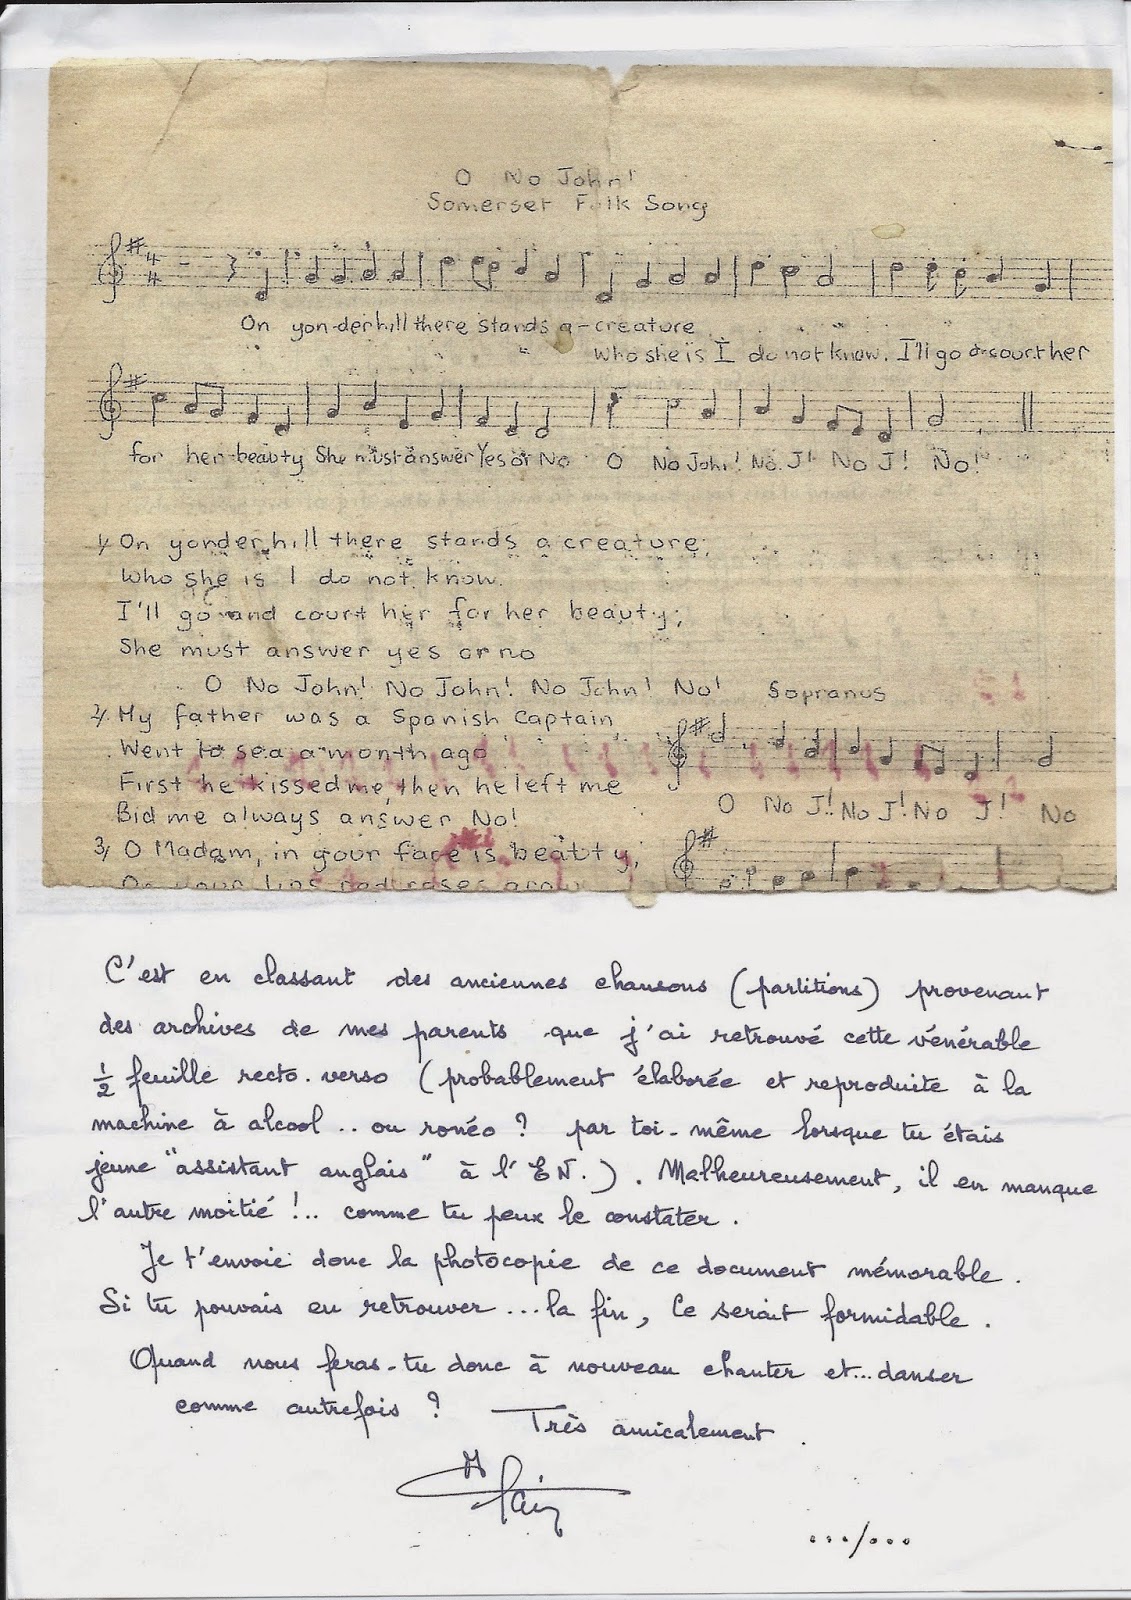 O No John!
Somerset Folk Song
On yon-derhill there stands a-creature
Who she is I do not know. I'll go & court her
for her beauty She must answer Yes or No O No John! No J! No J! No!
1/ On yonder hill there stands a creature;
Who she is I do not know.
I'll go and court her for her beauty;
She must answer yes or no
O No John! No John! No John! No!
Sopranos
2/ My father was a Spanish Captain
Went to sea a month ago
First he kissed me, then he left me
Bid me always answer No!
O No J!! No J! No J! No
3/ O Madam, in your face is beauty,
On your lips red roses grow
C'est en classant des anciennes chansons (partitions) provenant
des archives de mes parents que j'ai retrouvé cette vénérable
1/2 feuille recto-verso (probablement élaborée et reproduite à la
machine à alcool .. ou ronéo ? par toi-même lorsque tu étais
jeune "assistant anglais" à l'EN.). Malheureusement, il en manque
l'autre moitié !.. comme tu peux le constater.
Je t'envoie donc la photocopie de ce document mémorable.
Si tu pouvais en retrouver ... la fin, ce serait formidable.
Quand nous feras-tu donc à nouveau chanter et... danser
comme autrefois ? Très amicalement
.../...